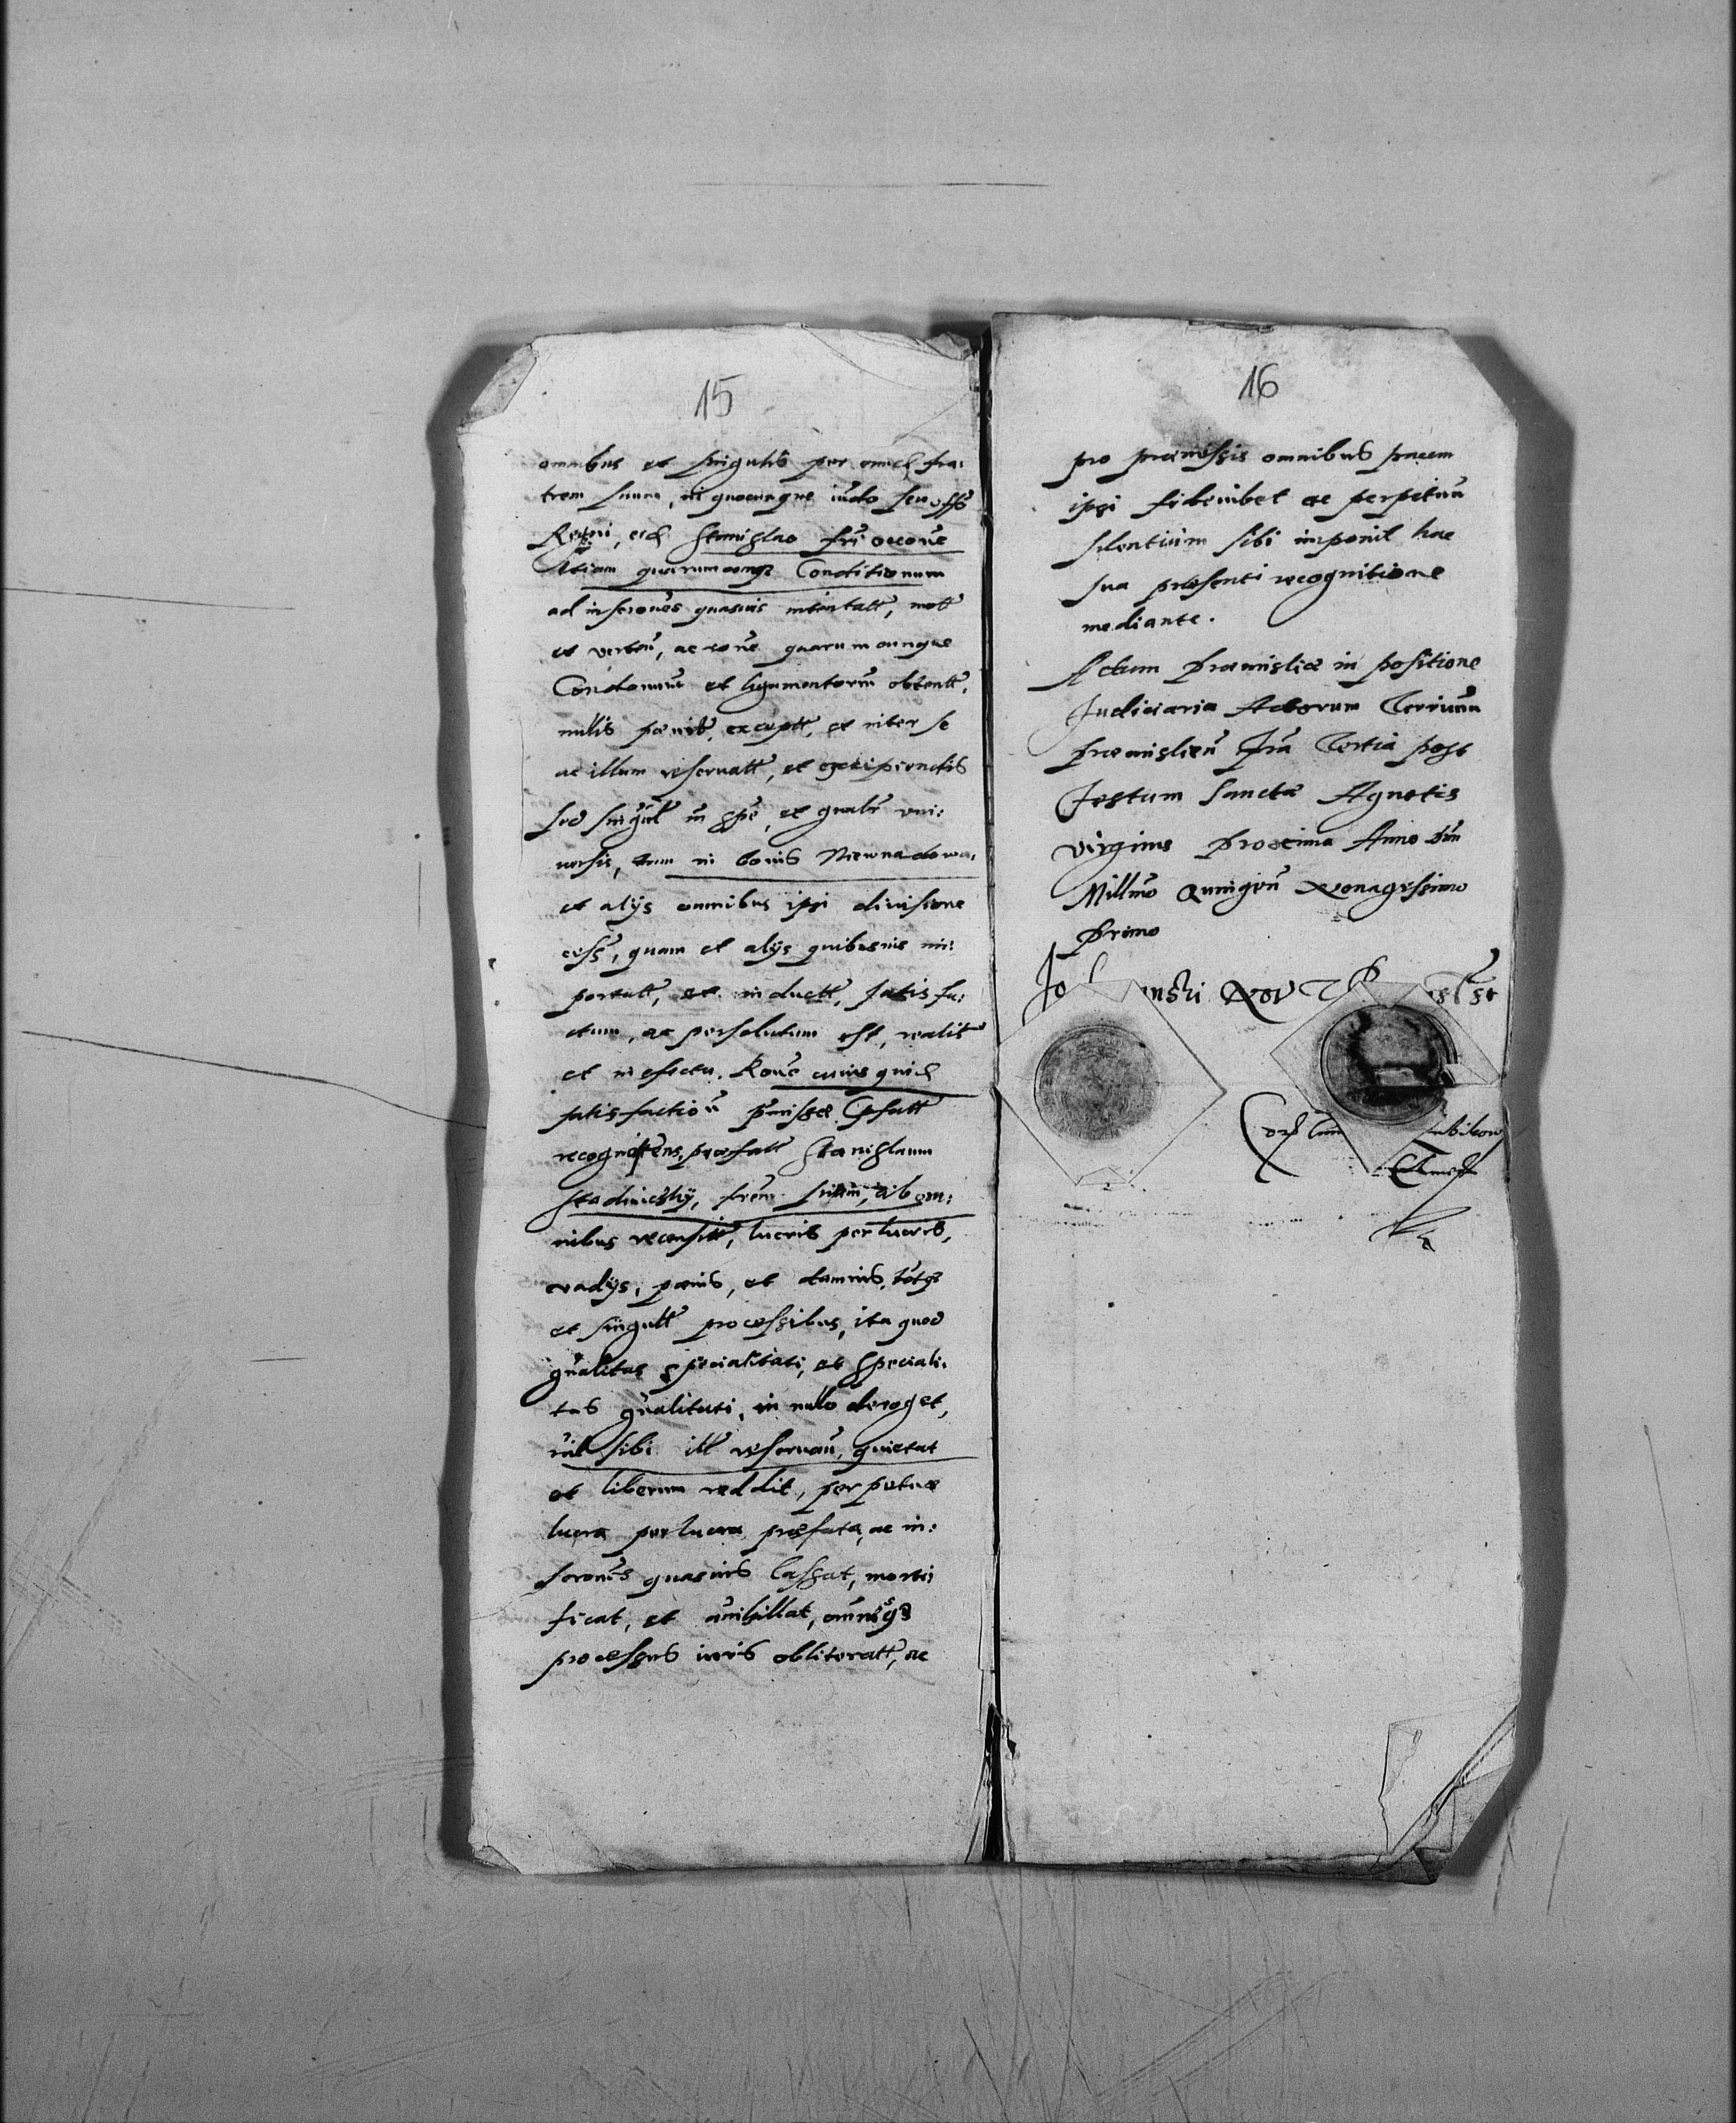 15
omnibus et singulis per eund fra:
trem suum, in quocunque iudo seu offo
Regni, eid Stanislao fri occone
Aliam quarumcunq Conditionum
ad inscrones quasuis intentatt, mott
et verten, ac rone quarumcunque
Condonum et ligamentorum obtentt,
nullis penit, exceptt, et inter se
ac illum reseruatt, et excipiendis
sed singul in spe, et gnalr vni:
uersis, tum in bonis Niewnadowa,
et alijs omnibus ipsi diuisione
cess, quam et alijs quibusuis im:
portatt, et inductt, satis fa:
ctum, ac persolutum est, realit
et in efectu. Rone cuius quid
satisfaction pmissae Ipsatt
recognoscens, praefatt Stanislaum
Stadniczky, frem suum, ab om:
nibus recensitt, lucris perlucris,
vadijs, poenis, et damnis, totq
et singult processibus, ita quod
gnalitas specialitati, et speciali:
tas gnalitati, in nullo deroget,
nil sibi ill reseruan, quietat
et liberum reddit, perpetuae
lucra perlucra praefata, ac in:
scrones quasuis Cassat, morti
ficat, et anihillat, omnesq
processus iuris obliteratt, ac
16
pro praemissis omnibus pacem
ipsi fideiubet ac perpetuum
silentium sibi imponit hac
sua praesenti recognitione
mediante.
Actum Praemisliae in positione
Judiciaria Actorum Terrium
Praemislien Fra Tertia post
Festum Sanctae Agnetis
virginis Proxima Anno Dni
Millmo Quingen Nonagesimo
Primo